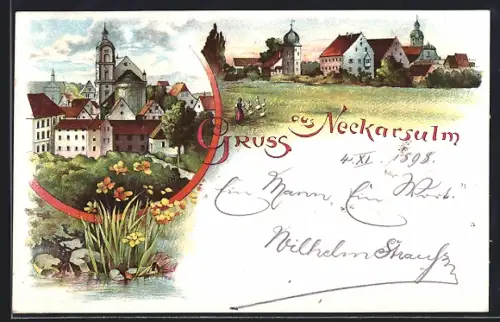 Gruss aus Neckarsulm
4. XI. 1898.
"Ein Mann, Ein Wort."
Wilhelm Strauß